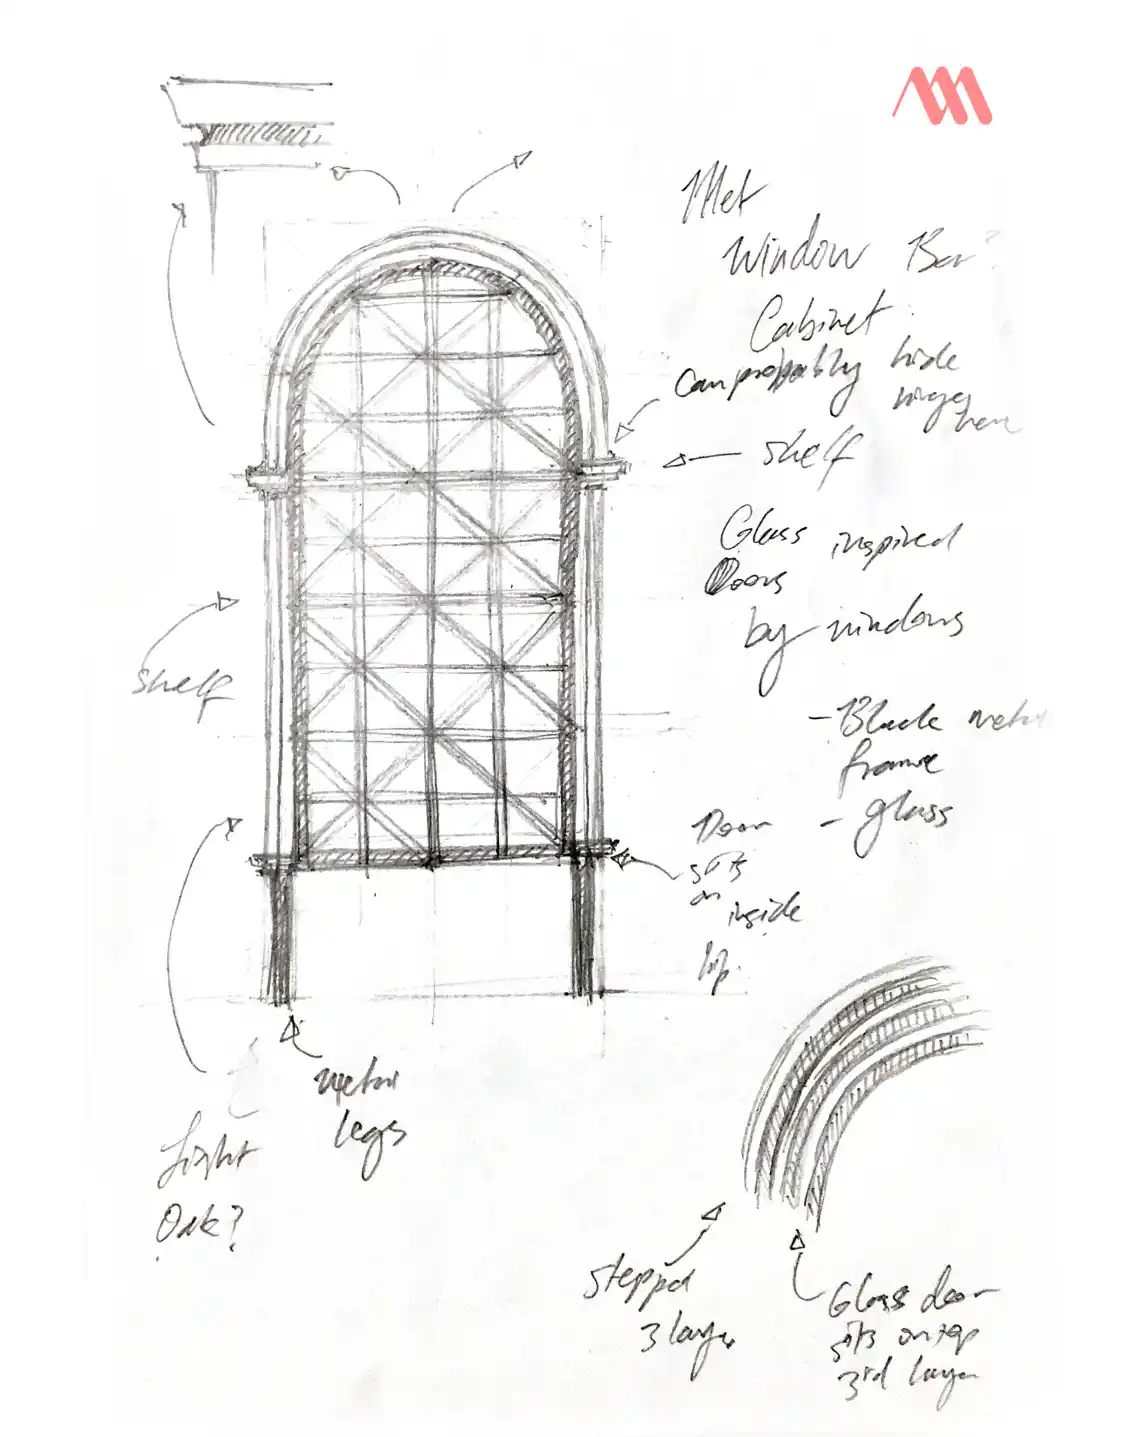 Met
Window Bar
Cabinet
Can proppably hide
hinges
here
shelf
Glass inspired
Doors
by windows
shelf
- Black metal
frame
- glass
Door
sits
on inside
lip.
metal
legs
Light
Oak?
stepped
3 layers
Glass door
sits on top
3rd layer